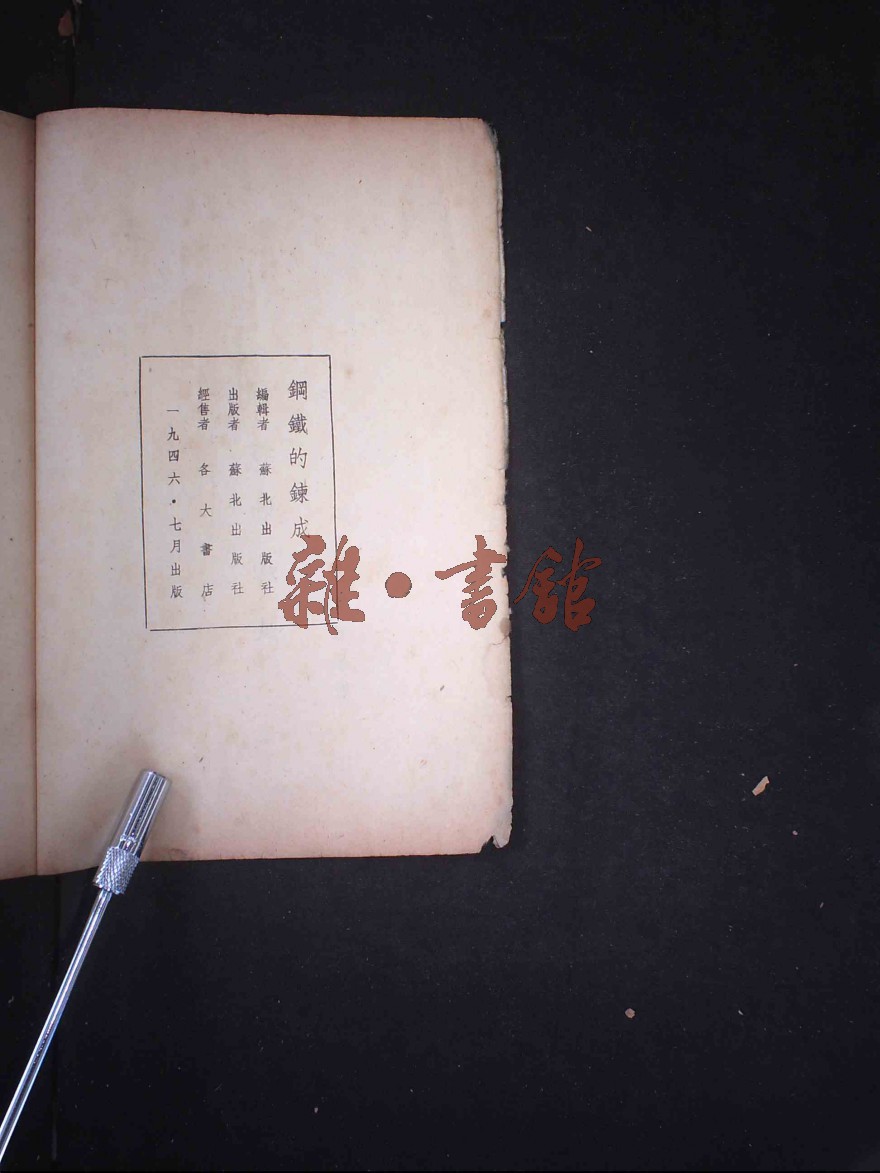 鋼鐵的鍊成
編輯者 蘇北出版社
出版者 蘇北出版社
經售者 各大書店
一九四六·七月出版
雜·書館